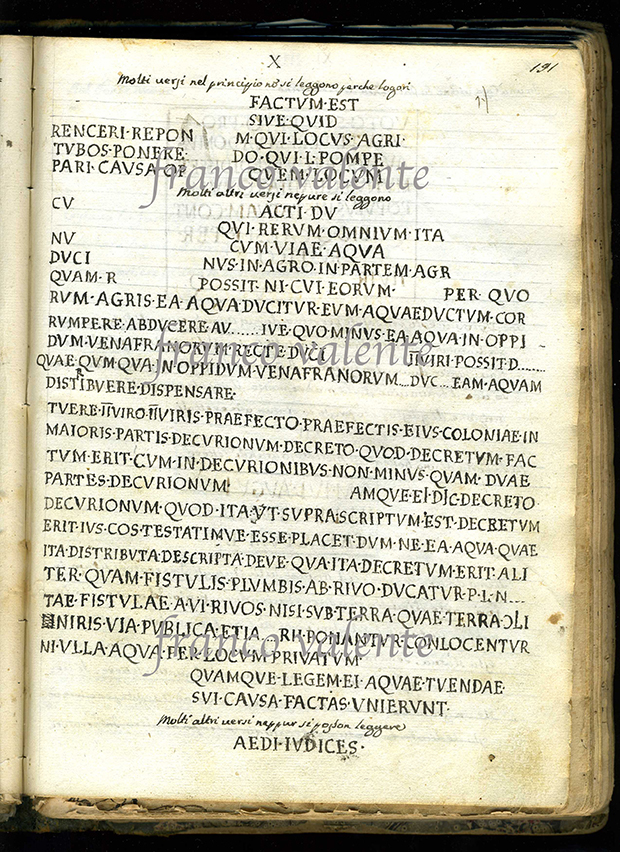 X
191
Molti versi nel principio nõ si leggono perche logori
FACTVM·EST
SIVE·QVID
RENCERI·REPON M·QVI·LOCVS·AGRI·
TVBOS·PONERE· DO·QVI·L·POMPE
PARI·CAVSA·OP QVEM·LOCVM
franco valente
Molti altri versi nepure si leggono
CV ACTI·DV
QVI·RERVM·OMNIVM·ITA
NV CVM·VIAE·AQVA
DVCI NVS·IN·AGRO·IN·PARTEM·AGR
QVAM·R POSSIT·NI·CVI·EORVM· PER·QVO
RVM·AGRIS·EA·AQVA·DVCITVR·EVM·AQVAEDVCTVM·COR
RVMPERE·ABDVCERE·AV..... IVE·QVO·MINVS·EA·AQVA·IN·OPPI
DVM·VENAFRANORVM·RECTE·DVCI IIVIRI·POSSIT·D.......
franco valente
QVAE·QVM·QVA·IN·OPPIDVM·VENAFRANORVM....DVC... EAM·AQVAM
DISTRIBVERE·DISPENSARE·
TVERE·IIVIRO·IIVIRIS·PRAEFECTO·PRAEFECTIS·EIVS·COLONIAE·IN
MAIORIS·PARTIS·DECVRIONVM·DECRETO·QVOD·DECRETVM·FAC
TVM·ERIT·CVM·IN·DECVRIONIBVS·NON·MINVS·QVAM·DVAE
PARTES·DECVRIONVM AMQVE·EI·DIC·DECRETO
DECVRIONVM·QVOD·ITA·VT·SVPRA·SCRIPTVM·EST·DECRETVM
ERIT·IVS·COS·TESTATIMVE·ESSE·PLACET·DVM·NE·EA·AQVA·QVAE
ITA·DISTRIBVTA·DESCRIPTA·DEVE·QVA·ITA·DECRETVM·ERIT·ALI
TER·QVAM·FISTVLIS·PLVMBIS·AB·RIVO·DVCATVR·P·L·N....
TAE·FISTVLAE·AVI·RIVOS·NISI·SVB·TERRA·QVAE·TERRA·
NIRIS·VIA·PVBLICA·ETIA RH·PONANTVR·CONLOCENTVR
franco valente
NI·VLLA·AQVA·PER·LOCVM·PRIVATVM·
QVAMQVE·LEGEM·EI·AQVAE·TVENDAE·
SVI·CAVSA·FACTAS·VNIERVNT·
Molti altri versi neppur si posson leggere
AEDI·IVDICES·